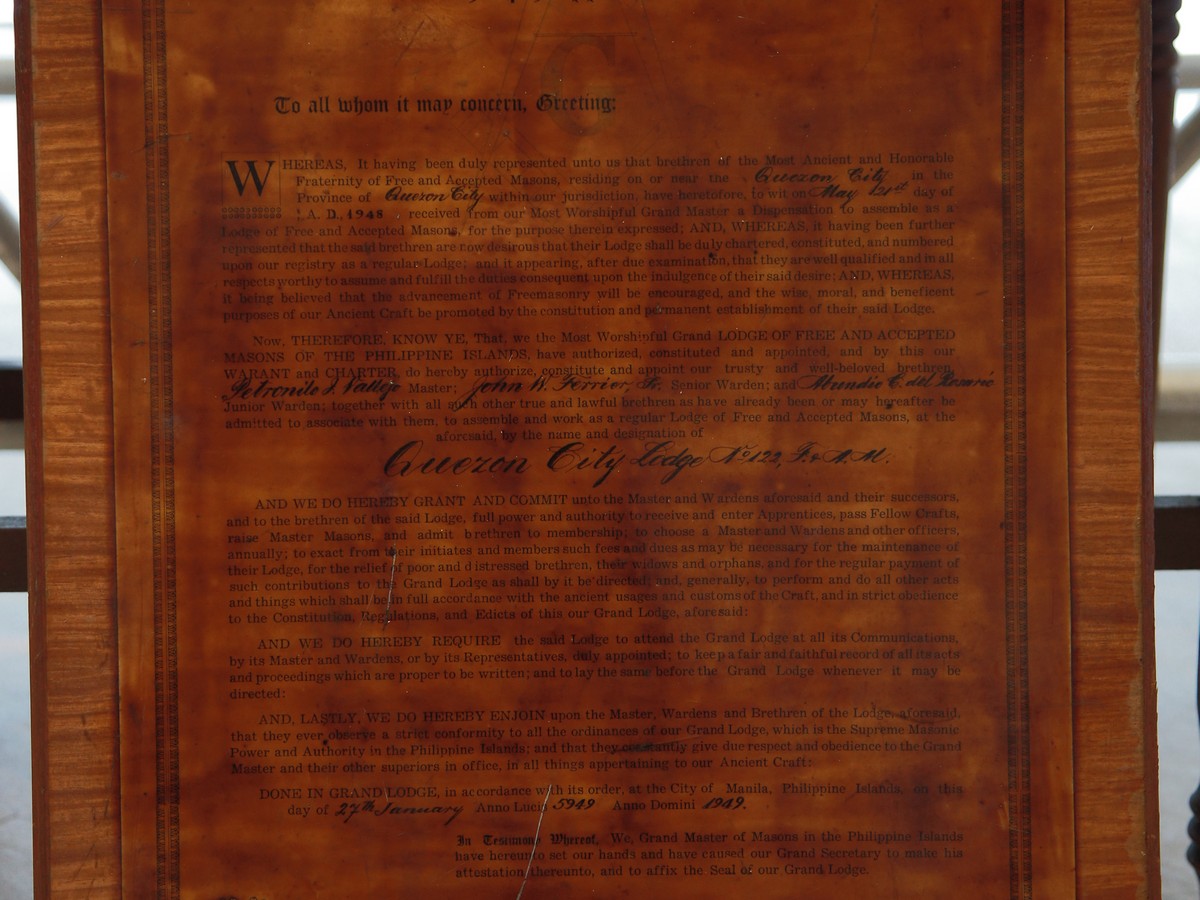 G
To all whom it may concern, Greeting:
WHEREAS, It having been duly represented unto us that brethren of the Most Ancient and Honorable
Fraternity of Free and Accepted Masons, residing on or near the Quezon City in the
Province of Quezon City within our jurisdiction, have heretofore, to wit on May 21st day of
A. D. 1948 received from our Most Worshipful Grand Master a Dispensation to assemble as a
Lodge of Free and Accepted Masons, for the purpose therein expressed; AND, WHEREAS, it having been further
represented that the said brethren are now desirous that their Lodge shall be duly chartered, constituted, and numbered
upon our registry as a regular Lodge; and it appearing, after due examination, that they are well qualified and in all
respects worthy to assume and fulfill the duties consequent upon the indulgence of their said desire; AND, WHEREAS,
it being believed that the advancement of Freemasonry will be encouraged, and the wise, moral, and beneficent
purposes of our Ancient Craft be promoted by the constitution and permanent establishment of their said Lodge.
Now, THEREFORE, KNOW YE, That, we the Most Worshipful Grand LODGE OF FREE AND ACCEPTED
MASONS OF THE PHILIPPINE ISLANDS, have authorized, constituted and appointed, and by this our
WARANT and CHARTER, do hereby authorize, constitute and appoint our trusty and well-beloved brethren,
Petronilo S. Vallejo Master; John W. Ferrier, Sr. Senior Warden; and Mundio C. del Rosario
Junior Warden; together with all such other true and lawful brethren as have already been or may hereafter be
admitted to associate with them, to assemble and work as a regular Lodge of Free and Accepted Masons, at the
aforesaid, by the name and designation of
Quezon City Lodge No 122, F. & A. M.
AND WE DO HEREBY GRANT AND COMMIT unto the Master and Wardens aforesaid and their successors,
and to the brethren of the said Lodge, full power and authority to receive and enter Apprentices, pass Fellow Crafts,
raise Master Masons, and admit brethren to membership; to choose a Master and Wardens and other officers,
annually; to exact from their initiates and members such fees and dues as may be necessary for the maintenance of
their Lodge, for the relief of poor and distressed brethren, their widows and orphans, and for the regular payment of
such contributions to the Grand Lodge as shall by it be directed; and, generally, to perform and do all other acts
and things which shall be in full accordance with the ancient usages and customs of the Craft, and in strict obedience
to the Constitution, Regulations, and Edicts of this our Grand Lodge, aforesaid:
AND WE DO HEREBY REQUIRE the said Lodge to attend the Grand Lodge at all its Communications,
by its Master and Wardens, or by its Representatives, duly appointed; to keep a fair and faithful record of all its acts
and proceedings which are proper to be written; and to lay the same before the Grand Lodge whenever it may be
directed:
AND, LASTLY, WE DO HEREBY ENJOIN upon the Master, Wardens and Brethren of the Lodge, aforesaid,
that they ever observe a strict conformity to all the ordinances of our Grand Lodge, which is the Supreme Masonic
Power and Authority in the Philippine Islands; and that they constantly give due respect and obedience to the Grand
Master and their other superiors in office, in all things appertaining to our Ancient Craft:
DONE IN GRAND LODGE, in accordance with its order, at the City of Manila, Philippine Islands, on this
day of 27th January Anno Lucis 5949 Anno Domini 1949.
In Testimony Whereof, We, Grand Master of Masons in the Philippine Islands
have hereunto set our hands and have caused our Grand Secretary to make his
attestation thereunto, and to affix the Seal of our Grand Lodge.